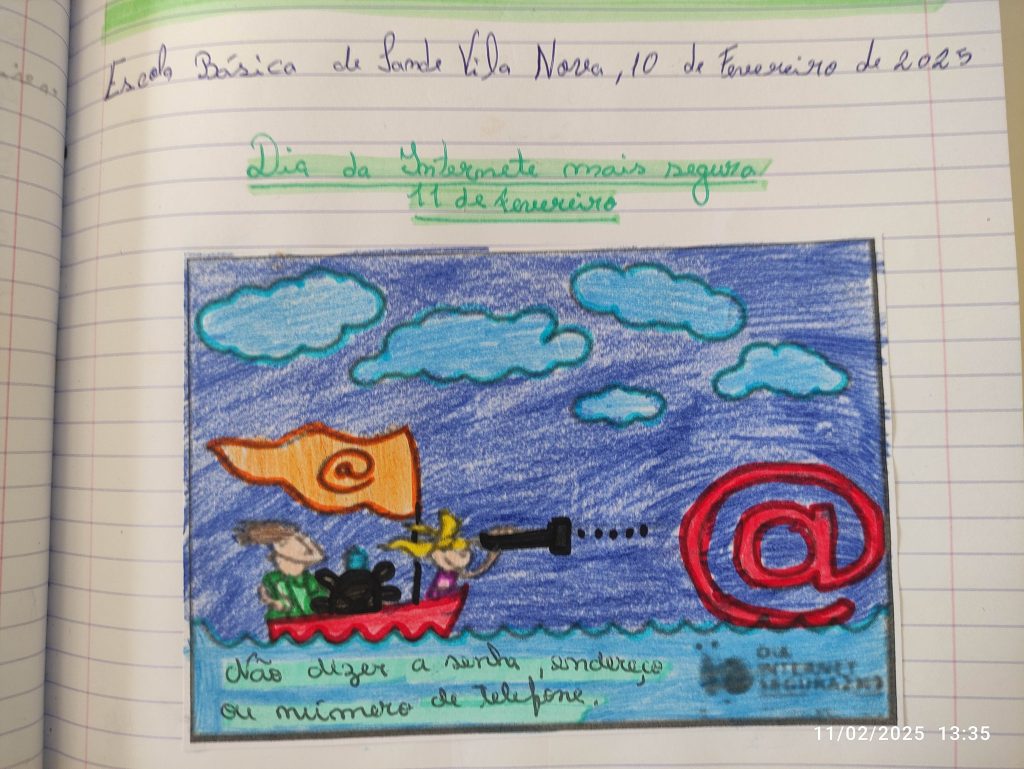 Escola Básica de Sande Vila Nova, 10 de Fevereiro de 2025
Dia da Internete mais segura
11 de fevereiro
@
@
Não dizer a senha, endereço
ou número de telefone.
DIA
INTERNET
SEGURA
11/02/2025 13:35